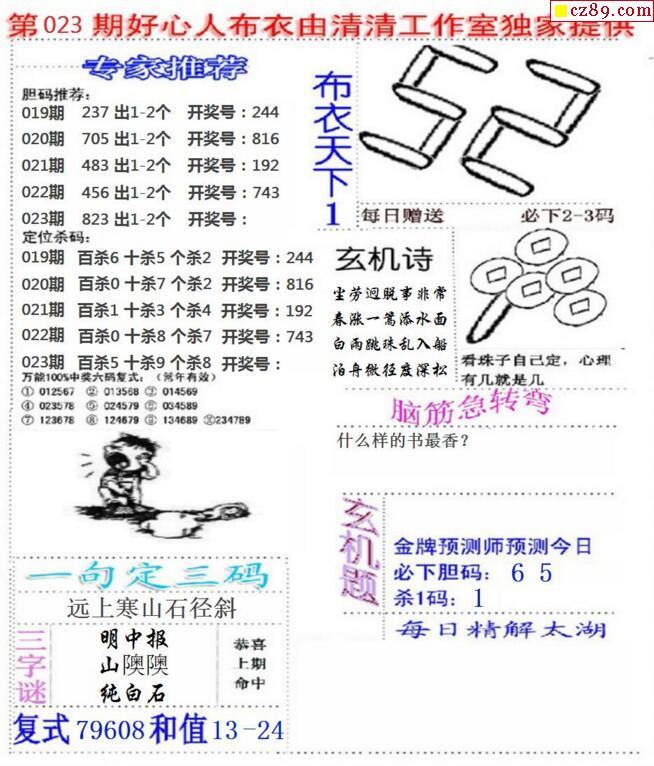 cz89.com
第023期好心人布衣由清清工作室独家提供
专家推荐
胆码推荐:
019期 237 出1-2个 开奖号:244
020期 705 出1-2个 开奖号:816
021期 483 出1-2个 开奖号:192
022期 456 出1-2个 开奖号:743
023期 823 出1-2个 开奖号:
定位杀码:
019期 百杀6 十杀5 个杀2 开奖号:244
020期 百杀0 十杀7 个杀2 开奖号:816
021期 百杀1 十杀3 个杀4 开奖号:192
022期 百杀0 十杀8 个杀7 开奖号:743
023期 百杀5 十杀9 个杀8 开奖号:
万能100%中奖六码复式:(常年有效)
① 012567 ② 013568 ③ 014569
④ 023578 ⑤ 024579 ⑥ 034589
⑦ 123678 ⑧ 124679 ⑨ 134689 ⑩234789
布衣天下1
52
每日赠送 必下2-3码
玄机诗
尘劳迥脱事非常
春涨一篙添水面
白雨跳珠乱入船
泊舟微径度深松
看珠子自己定,心理
有几就是几
脑筋急转弯
什么样的书最香?
一句定三码
远上寒山石径斜
三字谜
明中报
山隩隩
纯白石
恭喜
上期
命中
复式79608和值13-24
玄机题
金牌预测师预测今日
必下胆码: 6 5
杀1码: 1
每日精解太湖